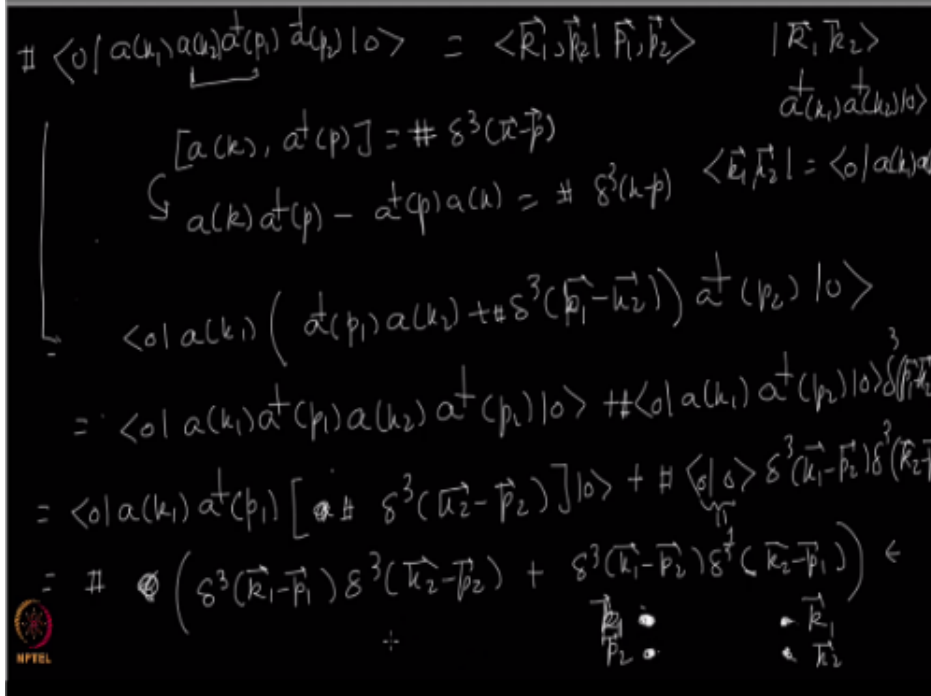 # <0| a(k₁) a(k₂) a†(p₁) a†(p₂) |0> = <k⃗₁, k⃗₂| p⃗₁, p⃗₂> |k⃗₁ k⃗₂>
a†(k₁) a†(k₂) |0>
[a(k), a†(p)] = # δ³(k⃗-p⃗)
<k⃗₁ k⃗₂| = <0| a(k₁) a(
a(k) a†(p) - a†(p) a(k) = # δ³(k-p)
= <0| a(k₁) ( a†(p₁) a(k₂) + # δ³(p⃗₁-k⃗₂) ) a†(p₂) |0>
= <0| a(k₁) a†(p₁) a(k₂) a†(p₂) |0> + # <0| a(k₁) a†(p₂) |0> δ³(p⃗₁-k⃗₂
= <0| a(k₁) a†(p₁) [ # δ³(k⃗₂-p⃗₂) ] |0> + # <0|0> δ³(k⃗₁-p⃗₂) δ³(k⃗₂-p
1
= # ( δ³(k⃗₁-p⃗₁) δ³(k⃗₂-p⃗₂) + δ³(k⃗₁-p⃗₂) δ³(k⃗₂-p⃗₁) ) ←
p⃗₁ • • k⃗₁
p⃗₂ • • k⃗₂
NPTEL